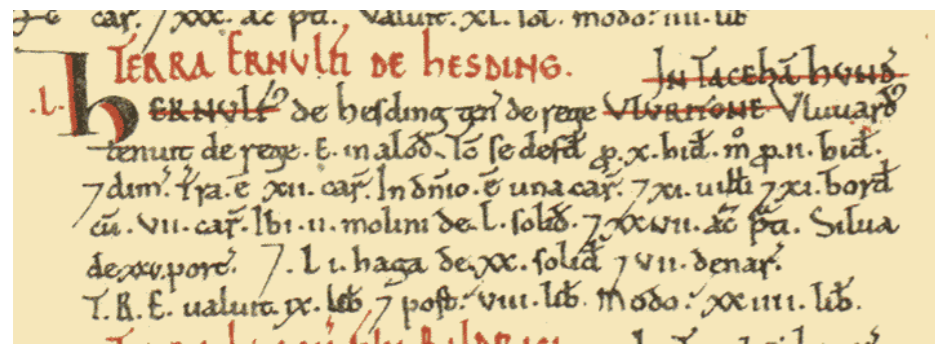 car̃. 7 xxx. ac̃ p̃ti. Valuit. xl. sol. modo: iiii. lib
TERRA ERNULFI DE HESDING. IN TACEHA̅ HUND̅
.L. HERNULF᾽ de hesding ten̅ de rege ULURITONE. Uluuard᾽
tenuit de rege. E. in alod̅. Tc̅ se defd̅ ꝓ. x. hid̅. m̊ ꝓ. ii. hid̅.
7 dim̅. T̅ra. e̅ xii. car̅. In dn̅io. e̅ una car̅. 7 xi. uill̅i 7 xi. bord̅
cu̅. vii. car̅. Ibi. ii. molini de. l. solid̅. 7 xxvii. ac̅ p̅ti. Silua
de xxv. porc̅. 7. L i. haga de. xx. solid̅ 7 vii. denar̅.
T. R. E. ualuit. ix. lib̅ 7 post: viii. lib̅. Modo: xxiiii. lib̅.